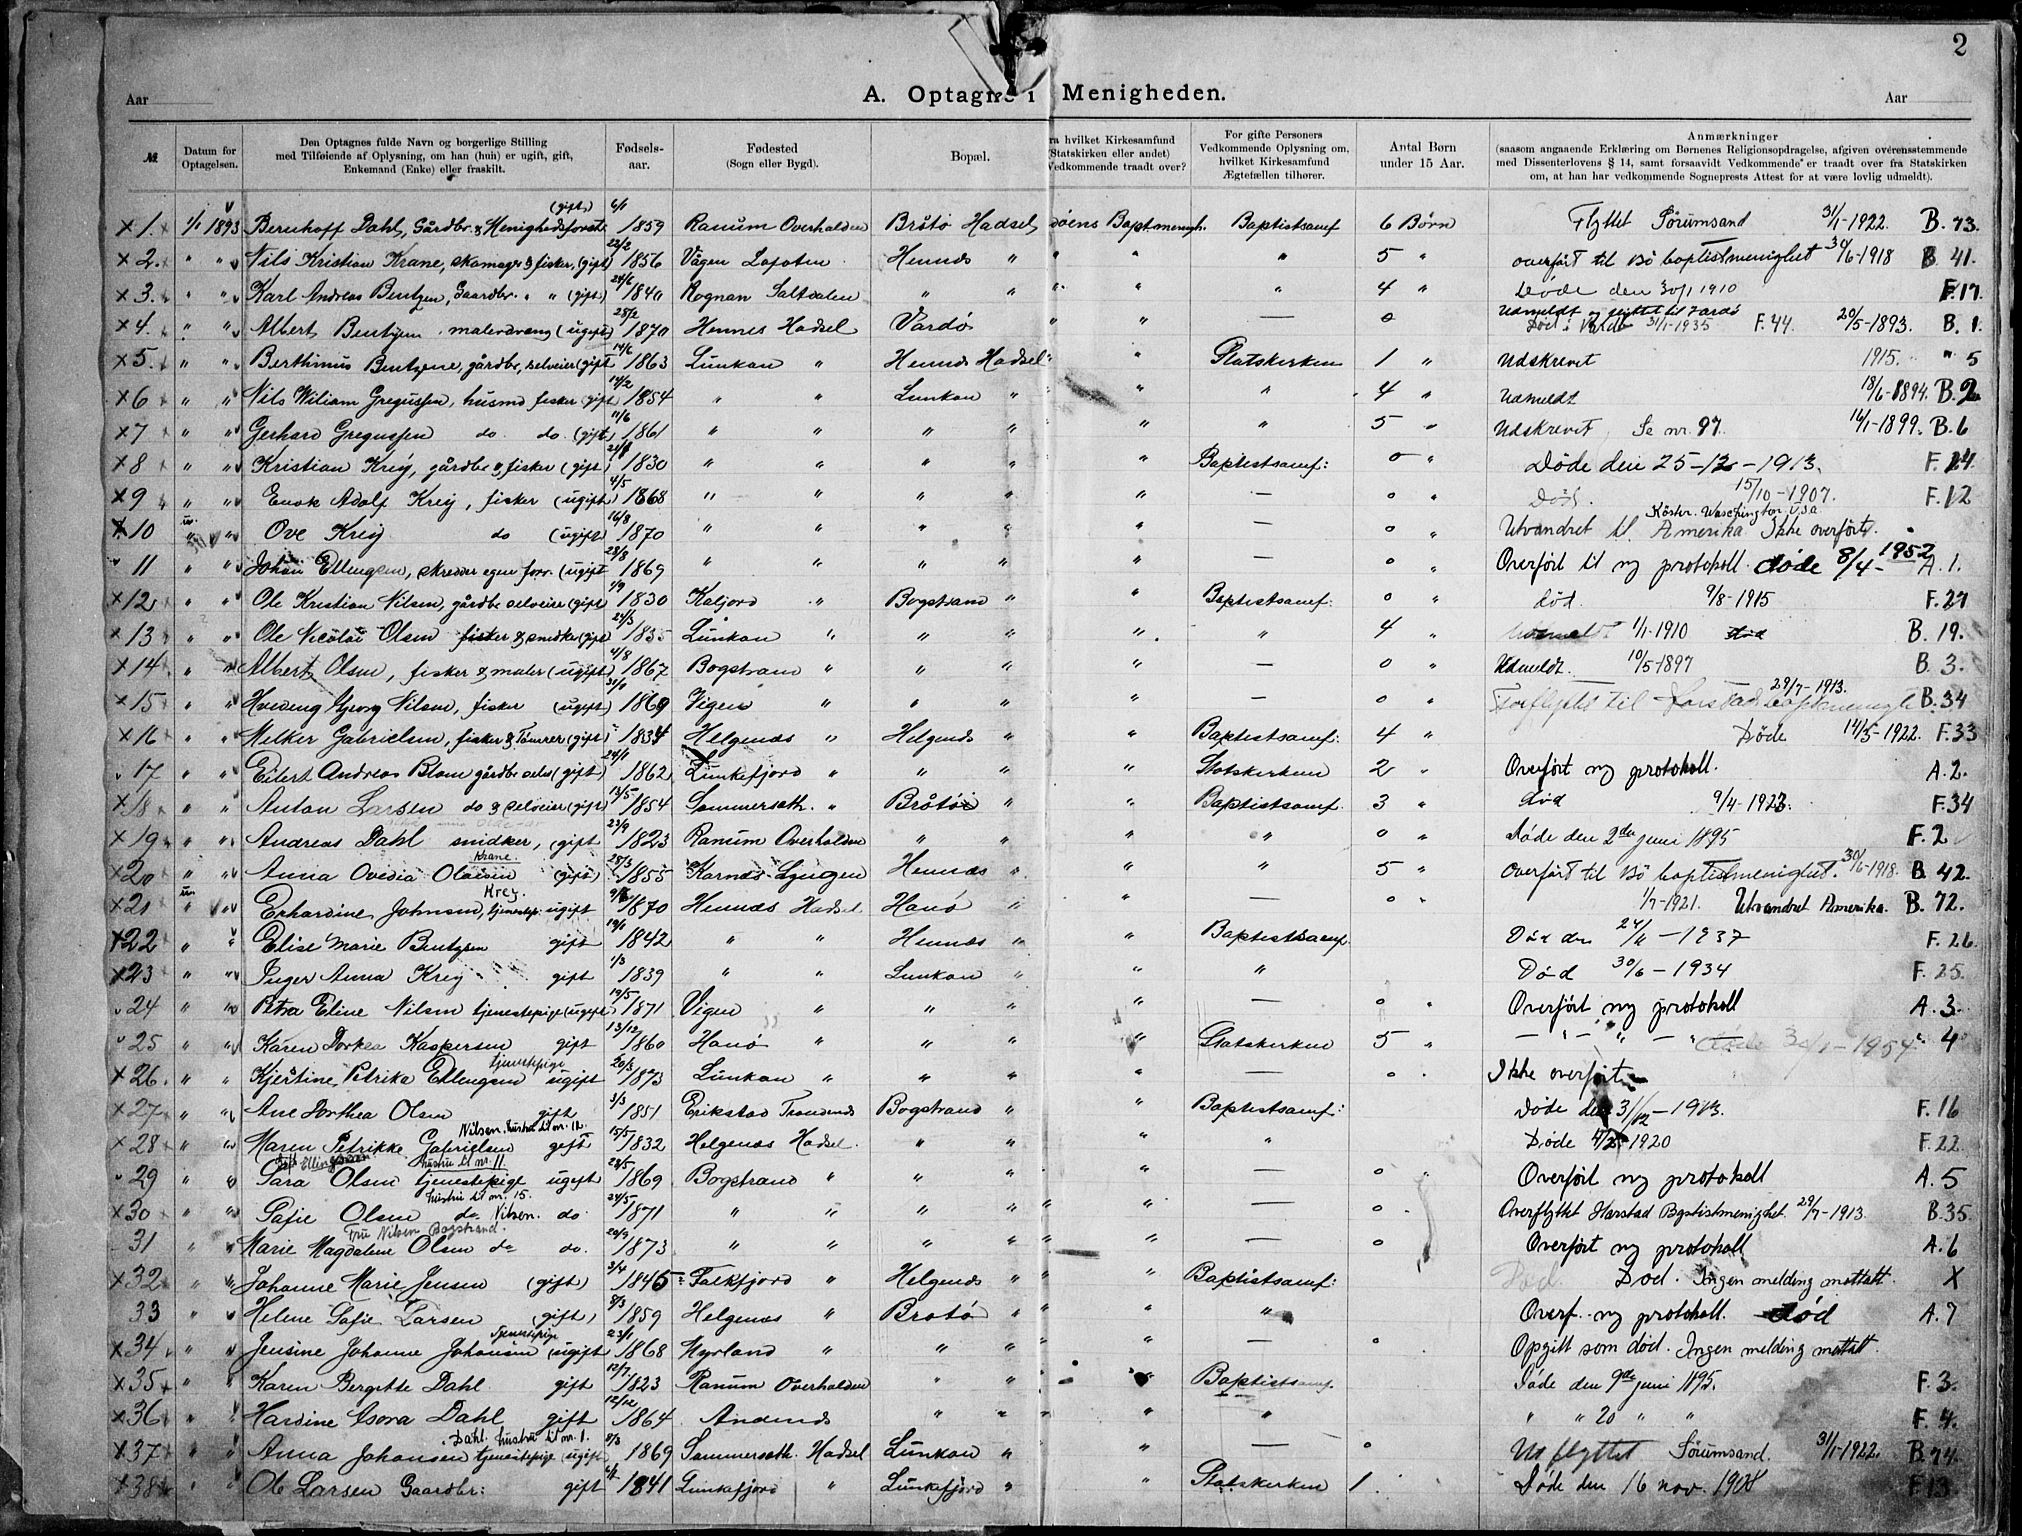 2
Aar
A. Optagne i Menigheden.
Aar
№.
Datum for Optagelsen.
Den Optagnes fulde Navn og borgerlige Stilling med Tilføiende af Oplysning, om han (hun) er ugift, gift, Enkemand (Enke) eller fraskilt.
Fødsels-aar.
Fødested (Sogn eller Bygd).
Bopæl.
ra hvilket Kirkesamfund Statskirken eller andet) Vedkommende traadt over?
For gifte Personers Vedkommende Oplysning om, hvilket Kirkesamfund Ægtefællen tilhører.
Antal Børn under 15 Aar.
Anmærkninger (saasom angaaende Erklæring om Børnenes Religionsopdragelse, afgiven overensstemmende med Dissenterlovens § 14, samt forsaavidt Vedkommende er traadt over fra Statskirken om, at han har vedkommende Sogneprests Attest for at være lovlig udmeldt).
X 1. 1/1 1893 Bernhoff Dahl, Gårdbr. & Menighedsforst. (gift) 6/1 1859 Ranum Overhalden Bråtø Hadsel söens Baptmenigh. Baptistsamf 6 Børn Flyttet Sörumsand 31/1-1922. B. 73.
X 2. " " Nils Kristian Krane, skomager & fisker, (gift) 22/2 1856 Vågen Lofoten Hennes " " " 5 " overført til Bö baptistmenighet 30/6-1918 B. 41.
X 3. " " Karl Andreas Bentzen, Gaardbr. " " (gift) 24/6 1840 Rognan Saltdalen " " " " 4 " Døde den 30/1 1910 F. 17.
X 4. " " Albert Bentzen malerdreng (ugift) 28/2 1870 Hennes Hadsel Vardø " " — 0 Udmeldt og flyttet til Vardö 20/5-1893. B. 1.
Död i Vardö 31/1-1935 F. 44.
X 5. " " Berthinus Bentzene, gårdbr, selveier (gift 14/6 1863 Lunkan " Hennes Hadsel " Statskirken 1 " Udskrevet 1915. " 5
X 6 " " Nils Wiliam Gregussen, husmd fisker (gift 14/2 1854 " " Lunkan " " " 4 " Udmeldt 18/6-1894. B. 2
X 7 " " Gerhard Gregussen do. do. (gift) 11/6 1861 " " " " " " 5 " Udskrevet Se nr. 97. 16/1-1899. B. 6
X 8 " " Kristian Krey, gårdbr & fisker (gift) 1830 " " " " " Baptistsamf: 0 " Døde den 25-12-1913. F. 24.
X 9 " " Enok Adolf Krey, fisker (ugift) 4/5 1868 " " " " " — 0 " Død. 15/10-1907. F. 12
X 10 " " Ove Krey do (ugift) 16/8 1870 " " " " " — 0 " Utvandret til Amerika. Ikke overført.
Köster. Waschington. USA
11 " " Johan Ellingsen, skredder egen forr. (ugift 23/8 1869 " " " " " — 0 " Overført til ny protokoll. døde 8/4-1952 A. 1.
X 12 " " Ole Kristian Nilsen, gårdbr selveier (gift) 1/9 1830 Kaljord " Bogstrand " " Baptistsamf: 0 " död. 9/8-1915 F. 27
X 13 " " Ole Nicolai Olsen fisker & snedker (gift) 21/3 1835 Lunkan " " " " " 4 " Udmeldt 1/1-1910 död B. 19.
X 14 " " Albert Olsen, fisker & maler (ugift) 4/8 1867 Bogstrand " " " " — 0 " Udmeldt. 10/5-1897 B. 3.
X 15 " " Hveding Georg Nilsen, fisker (ugift) 1869 Vigen " " " " — 0 " Forflyttet til Harstad baptmenigh 29/7-1913. B. 34
X 16 " " Melker Gabrielsen, fisker & Tømrer (gift) 1834 Helgenes " Helgenes " " Baptistsamf: 4 " Døde 14/5-1922. F. 33
17 " " Eilert Andreas Blom gårdbr selv (gift) 24/1 1862 Lunkefjord " " " " Statskirken 2 " Overført ny protokoll. A. 2.
X 18 " " Anton Larsen do & selveier (gift) 13/5 1854 Sommerseth. " Bråtø " " Baptistsamf. 3 " död 9/4-1923. F. 34
X 19 " " Andreas Dahl snidker, (gift 23/9 1823 Ranum Overhalden " " " " 0 " Døde den 2den juni 1895 F. 2
X 20 " " Anna Ovidia Olausen Krane. (gift) 28/3 1855 Karnes Lyngen Hennes " " " 5 " Overført til Bö baptistmenighet. 30/6-1918. B. 42.
X 21 " " Erhardine Johnsen, Krey. tjenestep: ugift 1870 Hennes Hadsel Hanø " " — 0 " 1/7-1921. Utvandret Amerika. B. 72.
X 22 " " Elise Marie Bentzen gift 19/1 1842 " " Hennes " " Baptistsamf Død den 24/11-1937 F. 26.
X 23 " " Inger Anna Krey gift 1/3 1839 " " Lunkan " " " Død 30/6-1934 F. 25.
24 " " Petra Eline Nilsen tjenestepige (ugift) 19/5 1871 Vigen " " " " — 0 " Overført ny protokoll A. 3.
25 " " Karen Dorkea Kaspersen gift 13/12 1860 Hanø " " " " Statskirken 5 " — " — " — " døde 30/1-1954 " 4
X 26. " " Kjerstine Petrika Ellengsen tjenestepige ugift 20/3 1873 Lunkan " " " " — 0 . Ikke overført
X 27 " " Ane Dorthea Olsen gift 3/3 1851 Erikstad Trondenes Bogstrand " " Baptistsamf: Døde den 31/12-1913. F. 16
X 28 " " Maren Petrikke Gabrielsen Nilsen. hustru til nr. 12. gift 15/5 1832 Helgenes Hadsel " " " " Døde 4/2-1920 F. 22.
29 " " Sara Olsen gift Ellingsen hustru til nr. 11 tjenestepige ugift 28/5 1869 Bogstrand " " " " — 0 " Overført ny protokoll A. 5
X 30 " " Sofie Olsen hustru til nr. 15. do Nilsen. do. 24/5 1871 " " " " " — 0 . Overflyttet Harstad Baptistmenighet. 29/7-1913. B. 35.
31 " " Marie Magdalene Olsen Fru Nilsen Bogstrand. do do. 20/9 1873 " " " " " — 0 Overført ny protokoll A. 6
X 32 " " Johanne Marie Jensen (gift) 3/4 1845 Falkfjord " Helgenes " " Baptistsamf: Død. Død. Ingen melding mottatt. X
33 " " Helene Sofie Larsen (gift) 8/3 1859 Helgenes " Brotø " " " Overf. ny protokoll. død A. 7
X 34 " " Jensine Johanne Johansen tjenestepige (ugift) 23/1 1868 Myrland " " " " — 0 Opgitt som død. Ingen melding mottatt.
X 35 " " Karen Bergitte Dahl gift 12/7 1823 Ranum Overhalden " " " Baptistsamf. Døde den 9de juni 1895. F. 3.
X 36 " " Hardine Asora Dahl gift 12/12 1864 Andenes " " " " " " 20 " " F. 4.
X 37 " " Anna Johansen Dahl. hustru til nr. 1. tjenestepige (ugift) 8/3 1869 Sommerseth. Hadsel Lunkan " " — 0 Udflyttet Sörumsand. 31/1-1922. B. 74.
X 38 " " Ole Larsen Gaardbr: gift 1841 Lunkefjord " Lunkefjord " " Statskirken 1 . Døde den 16 nov. 1908 F. 13